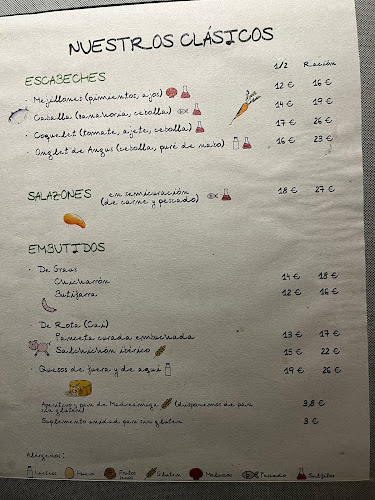 NUESTROS CLÁSICOS
1/2 Ración
ESCABECHES
· Mejillones (pimientos, ajos) 12 € 16 €
· Caballa (zanahoria, cebolla) 14 € 19 €
· Coquelet (tomate, ajete, cebolla) 17 € 26 €
· Onglet de Angus (cebolla, puré de nabo) 16 € 23 €
SALAZONES en semicuración 18 € 27 €
(de carne y pescado)
EMBUTIDOS
· De Graus
Chicharrón 14 € 18 €
Butifarra 12 € 16 €
· De Rota (Cai)
Panceta curada embuchada 13 € 17 €
Salchichón ibérico 15 € 22 €
· Quesos de fuera y de aquí 19 € 26 €
Aperitivo y pan de Madreamiga (disponemos de pan 3,8 €
sin gluten)
Suplemento unidad pan sin gluten 3 €
Alérgenos:
Lácteos Huevo Frutos Gluten Moluscos Pescado Sulfitos
secos